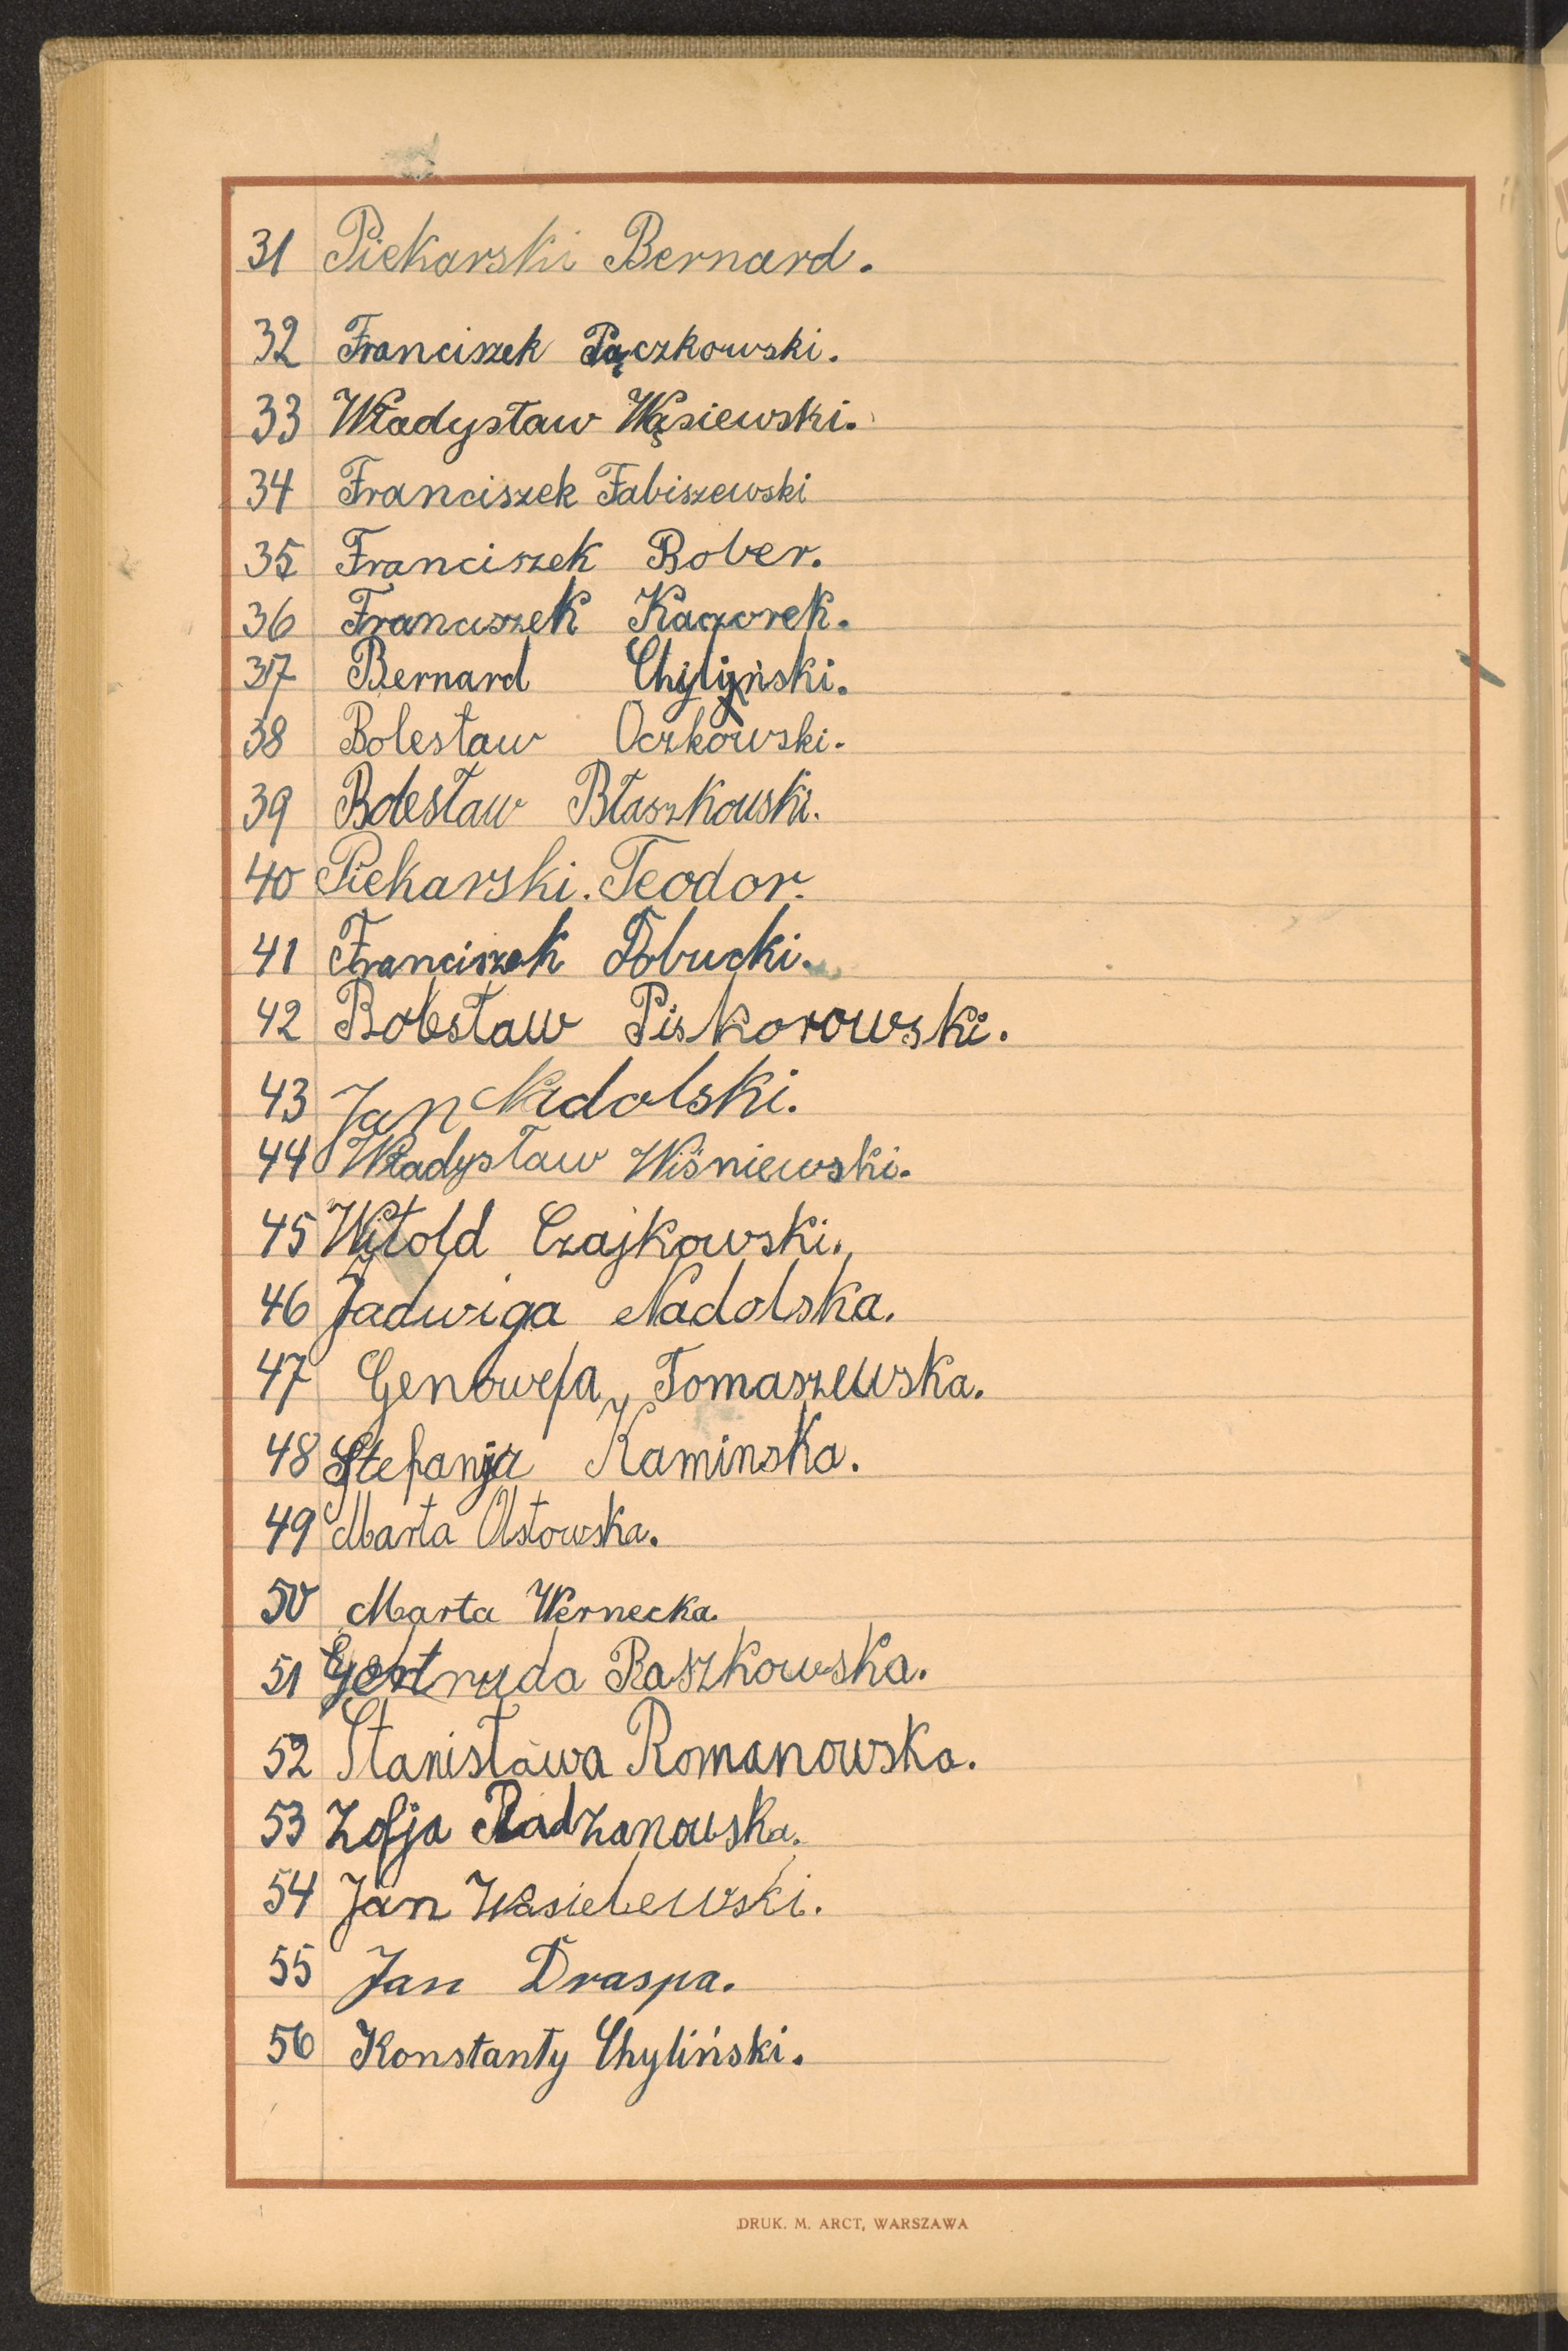 31 Piekarski Bernard.
32 Franciszek Pączkowski.
33 Władysław Wąsiewski.
34 Franciszek Fabiszewski
35 Franciszek Bober.
36 Franciszek Kaczorek.
37 Bernard Chyliński.
38 Bolesław Oczkowski.
39 Bolesław Błaszkowski.
40 Piekarski. Teodor.
41 Franciszek Dłbucki.
42 Bolesław Piskorowski.
43 Jan Nadolski.
44 Władysław Wiśniewski.
45 Witold Czajkowski.
46 Jadwiga Nadolska.
47 Genowefa Tomaszewska.
48 Stefanja Kaminska.
49 Marta Ostowska.
50 Marta Wernecka.
51 Gertruda Raszkowska.
52 Stanisława Romanowska.
53 Zofja Radzanowska.
54 Jan Wasielewski.
55 Jan Draspa.
56 Konstanty Chyliński.
DRUK. M. ARCT, WARSZAWA